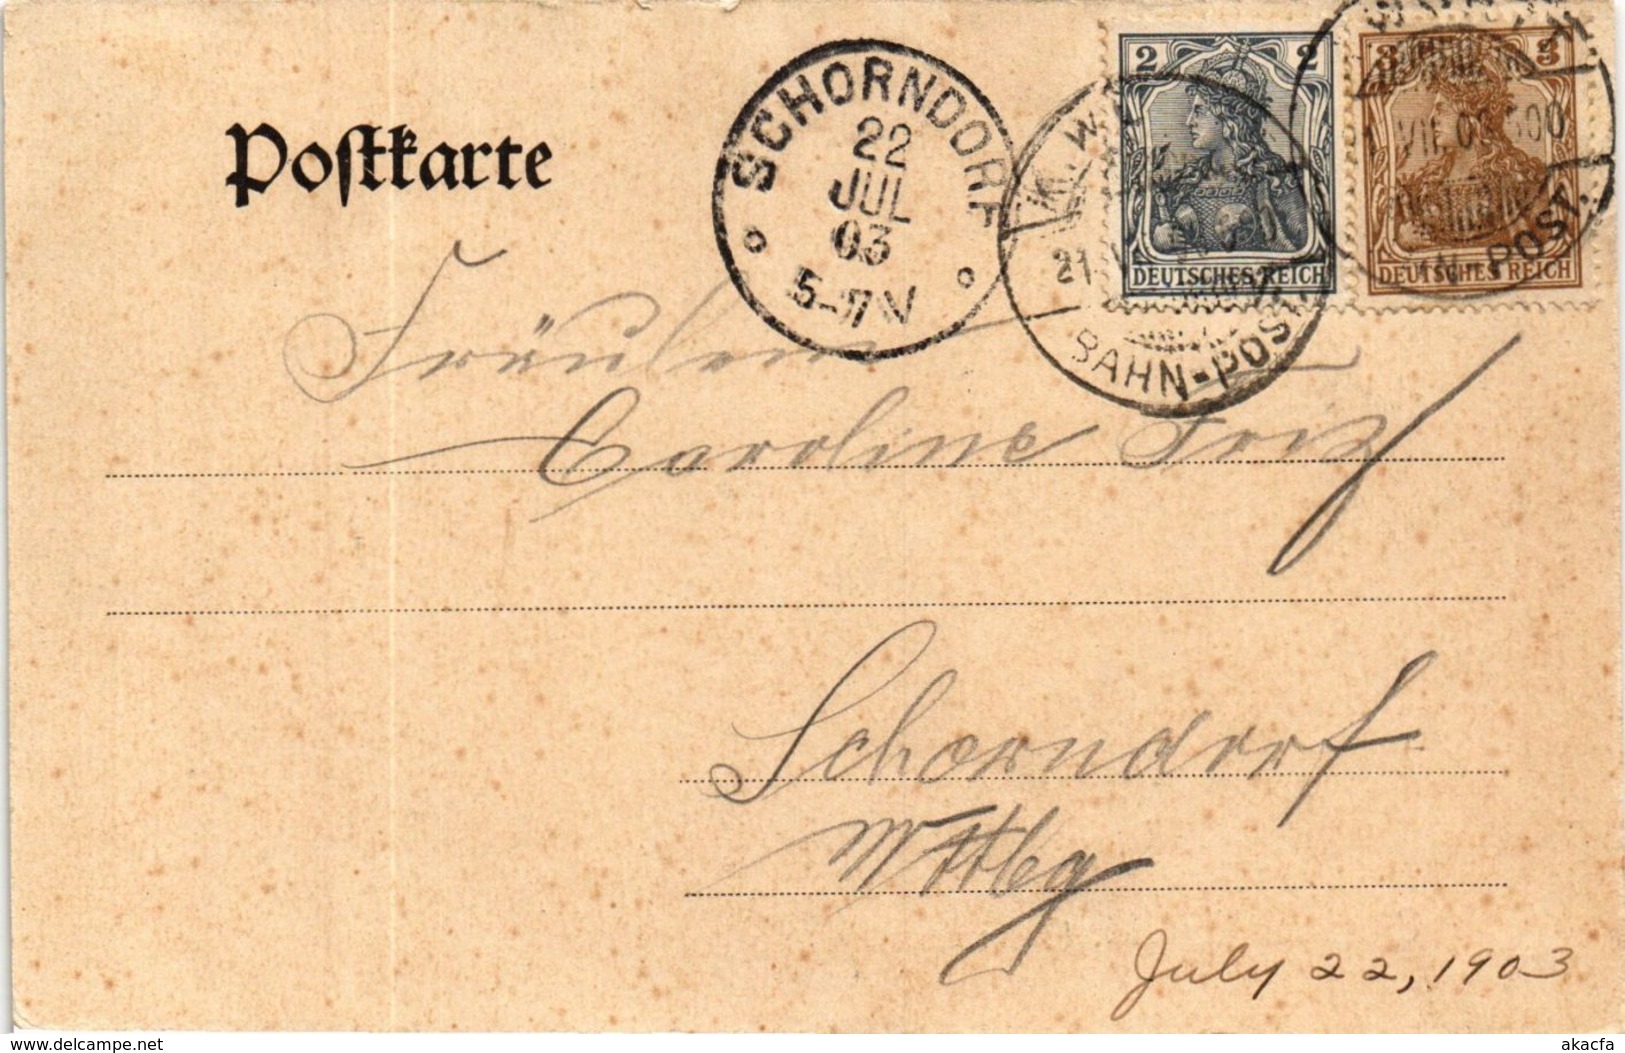 Postkarte
SCHORNDORF
22
JUL
03
5-7 N
K. W.
21
BAHN-POST
2 2
DEUTSCHES REICH
3 3
DEUTSCHES REICH
VII. 03 500
POST.
Fräulein
Caroline Friz
Schorndorf
Wttbg
July 22, 1903
www.delcampe.net
akacfa